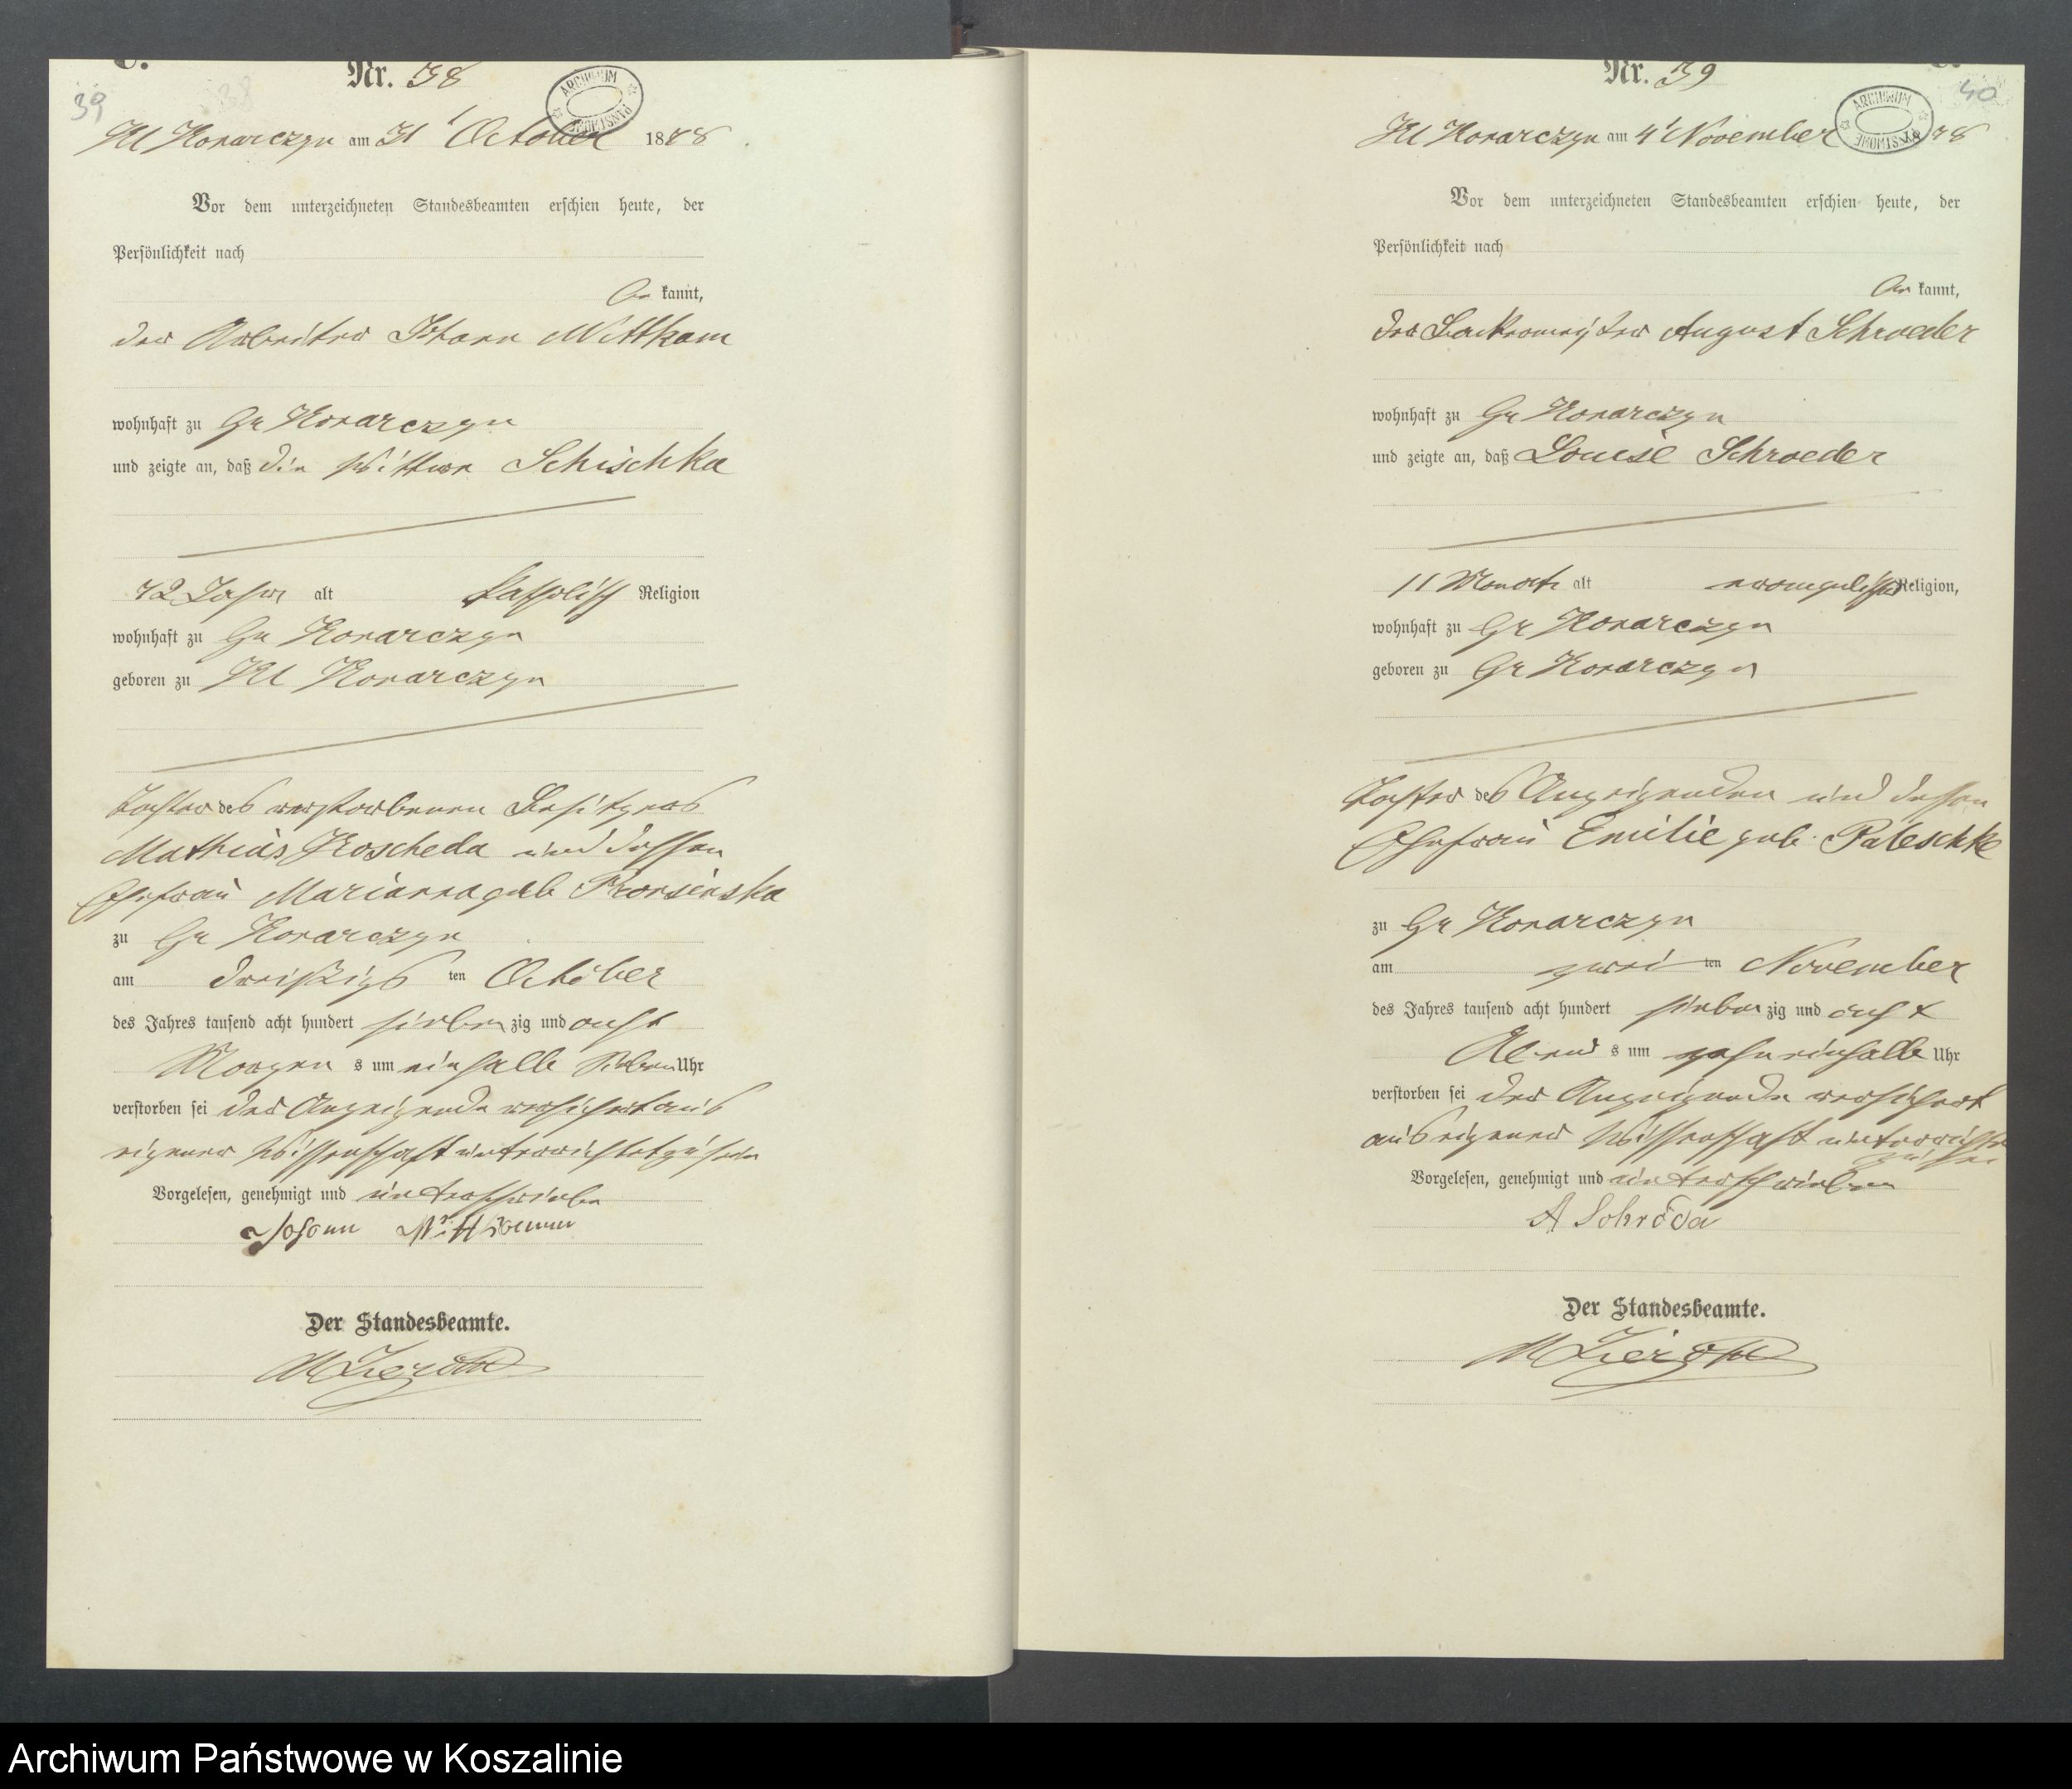 39
Nr. 38
ARCHIWUM PAŃSTWOWE
Kl Konarczyn am 31' October 1878
Vor dem unterzeichneten Standesbeamten erschien heute, der
Persönlichkeit nach
be kannt,
der Arbeiter Johann Wittkam
wohnhaft zu Gr Konarczyn
und zeigte an, daß die Wittwe Schischka
72 Jahre alt katholisch Religion
wohnhaft zu Gr Konarczyn
geboren zu Kl Konarczyn
Tochter des verstorbenen Besitzers
Mathias Koscheda und dessen
Ehefrau Marianna geb
zu Gr Konarczyn
am dreißigs ten October
des Jahres tausend acht hundert sieben zig und acht
Morgen s um einhalb sieben Uhr
verstorben sei der Anzeigende versichert aus
eigener Wissenschaft unterrichtet zu sein
Vorgelesen, genehmigt und unterschrieben
Johann
Der Standesbeamte.
40
Nr. 39
ARCHIWUM PAŃSTWOWE
Kl Konarczyn am 4' November 78
Vor dem unterzeichneten Standesbeamten erschien heute, der
Persönlichkeit nach
be kannt,
der August Schroeder
wohnhaft zu Gr Konarczyn
und zeigte an, daß Louise Schroeder
11 Monate alt evangelischer Religion,
wohnhaft zu Gr Konarczyn
geboren zu Gr Konarczyn
Tochter des Anzeigenden und dessen
Ehefrau Emilie geb. Pateschke
zu Gr Konarczyn
am zwei ten November
des Jahres tausend acht hundert sieben zig und acht
Abend s um zehneinhalb Uhr
verstorben sei der Anzeigende versichert
aus eigener Wissenschaft unterrichtet
zu sein
Vorgelesen, genehmigt und unterschrieben
A Schröda
Der Standesbeamte.
Archiwum Państwowe w Koszalinie